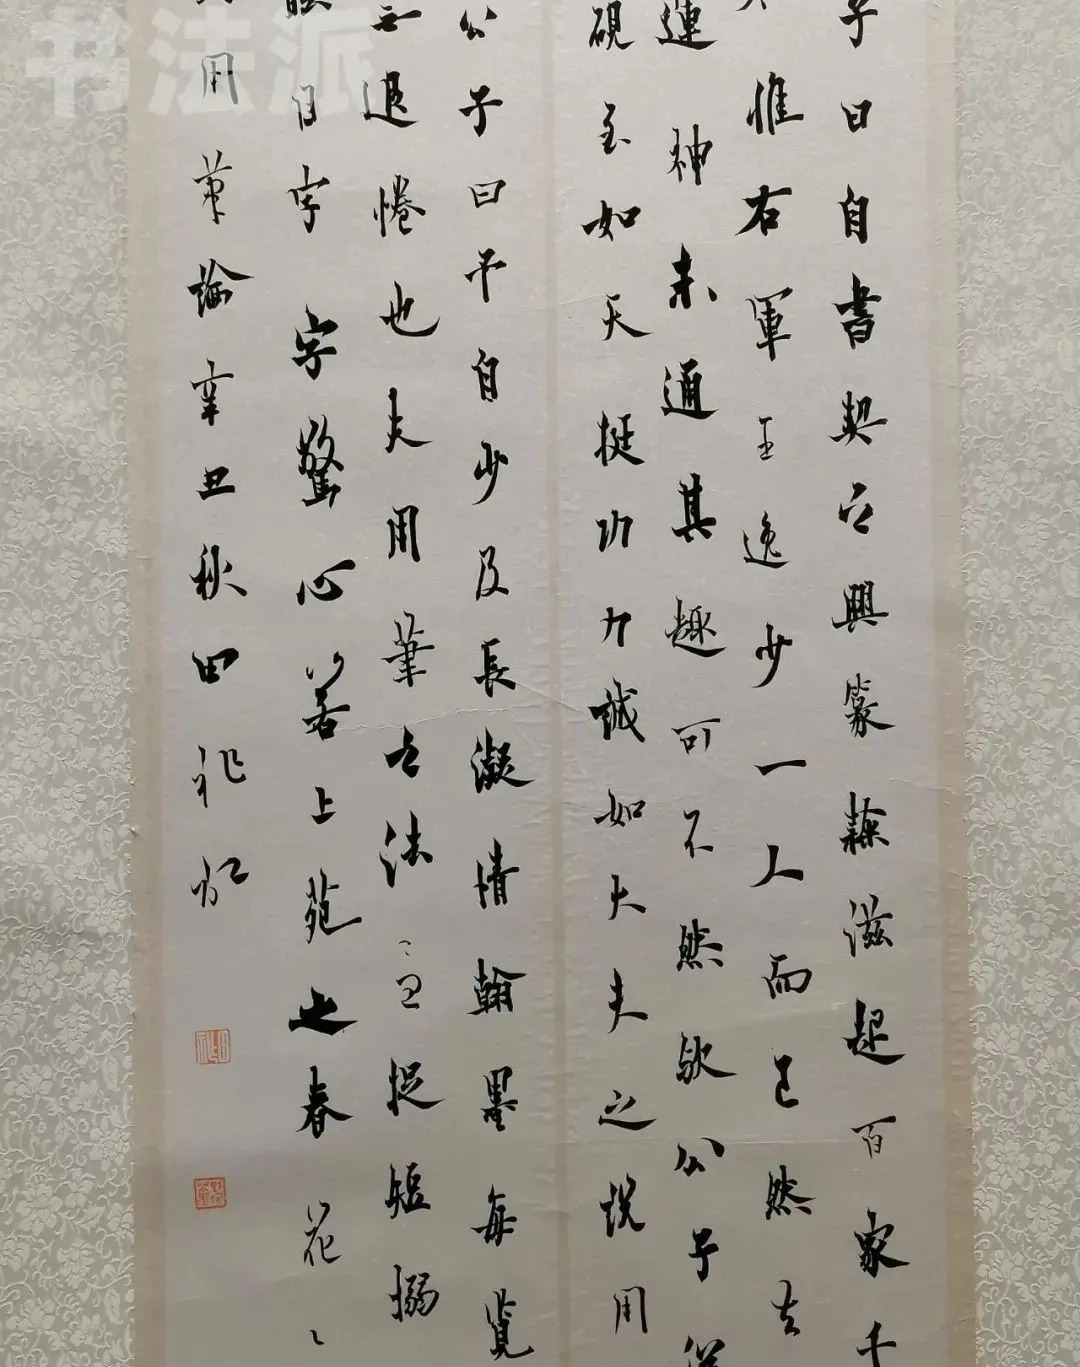 书法派
子曰自書契之興篆隸滋起百家千
惟右軍王逸少一人而已然去
連神未通其趣可不然歟公子從
硯至如天挺功力誠如大夫之說用
公子曰予自少及長凝情翰墨每覽
無退倦也夫用筆之法急捉短搦
目字字驚心若上苑之春花
用筆論辛丑秋田